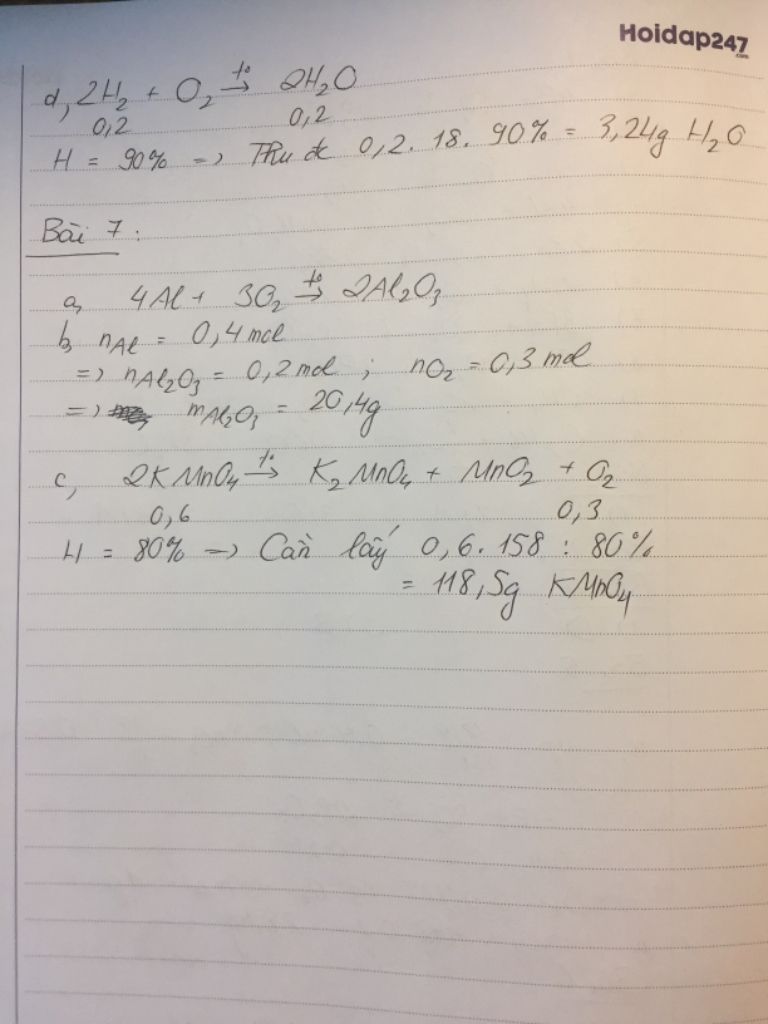 Hoidap247
.com
d, 2H₂ + O₂ t°→ 2H₂O
0,2 0,2
H = 90% => Thu đc 0,2. 18. 90% = 3,24g H₂O
Bài 7 :
a, 4Al + 3O₂ t°→ 2Al₂O₃
b, nAl = 0,4 mol
=> nAl₂O₃ = 0,2 mol ; nO₂ = 0,3 mol
=> mAl₂O₃ = 20,4g
c, 2KMnO₄ t°→ K₂MnO₄ + MnO₂ + O₂
0,6 0,3
H = 80% => Cần lấy 0,6. 158 : 80%
= 118,5g KMnO₄